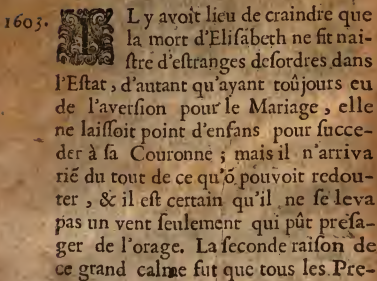 1603. IL y avoit lieu de craindre que
la mort d'Eliſabeth ne fit nai-
ſtre d'eſtranges deſordres dans
l'Eſtat, d'autant qu'ayant toûjours eu
de l'averſion pour le Mariage, elle
ne laiſſoit point d'enfans pour ſucce-
der à ſa Couronne ; mais il n'arriva
rié du tout de ce qu'ó pouvoit redou-
ter, & il eſt certain qu'il ne ſe leva
pas un vent ſeulement qui pût preſa-
ger de l'orage. La ſeconde raiſon de
ce grand calme fut que tous les Pre-